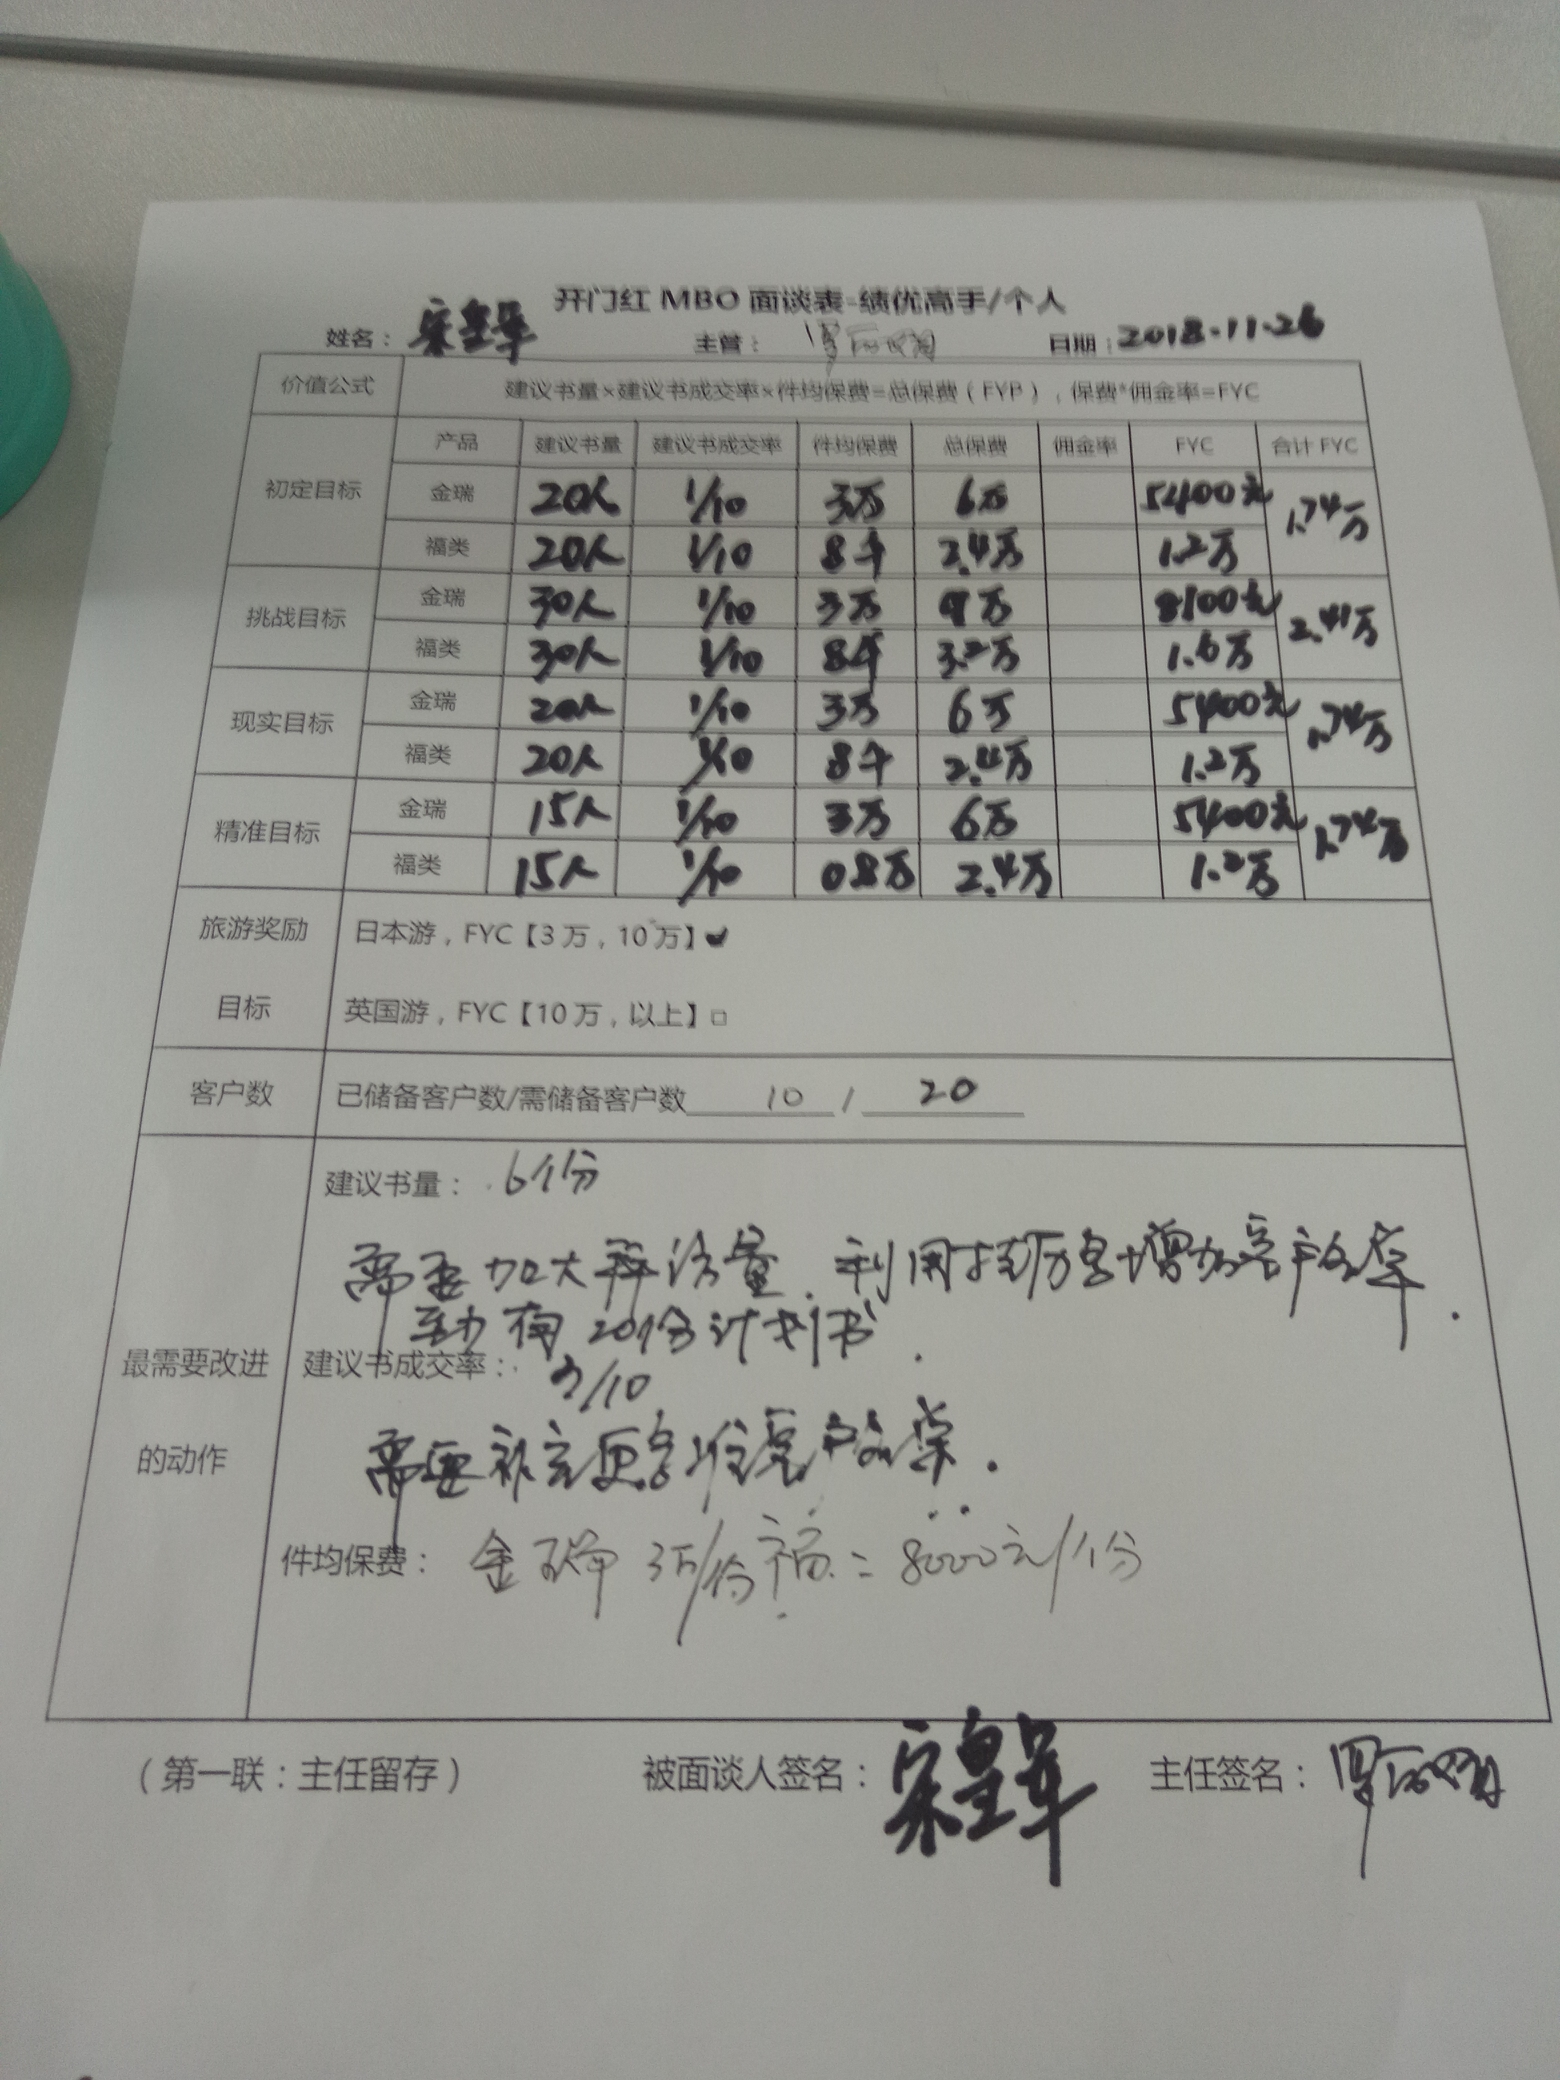 开门红 MBO 面谈表-绩优高手/个人
姓名： 宋皇军 主管： 日期：2018.11.26
价值公式 建议书量×建议书成交率×件均保费=总保费（FYP），保费*佣金率=FYC
初定目标 产品 建议书量 建议书成交率 件均保费 总保费 佣金率 FYC 合计 FYC
金瑞 20人 1/10 3万 6万 5400元 1.74万
福类 20人 1/10 8千 2.4万 1.2万
挑战目标 金瑞 30人 1/10 3万 9万 8100元 2.41万
福类 30人 1/10 8千 3.2万 1.6万
现实目标 金瑞 20人 1/10 3万 6万 5400元 1.74万
福类 20人 1/10 8千 2.4万 1.2万
精准目标 金瑞 15人 1/10 3万 6万 5400元 1.74万
福类 15人 1/10 0.8万 2.4万 1.2万
旅游奖励
目标
日本游，FYC【3万，10万】✓
英国游，FYC【10万，以上】□
客户数 已储备客户数/需储备客户数 10 / 20
最需要改进
的动作
建议书量： 6个份
需要加大拜访量，利用 增加客户名单
有20份计划书.
建议书成交率： /10
需要 更多准客户名单.
件均保费： 金瑞 3万/份 福=8000元/份
（第一联：主任留存） 被面谈人签名：宋皇军 主任签名：